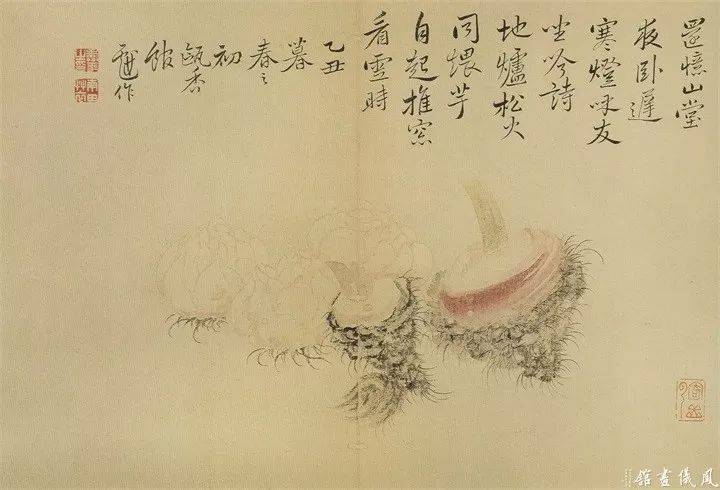 還憶山堂
夜卧遲
寒燈呼友
坐吟詩
地爐松火
同煨芋
自起推窓
看雪時
乙丑
暮
春之
初
甌香
館
壽平作
風儀畫館